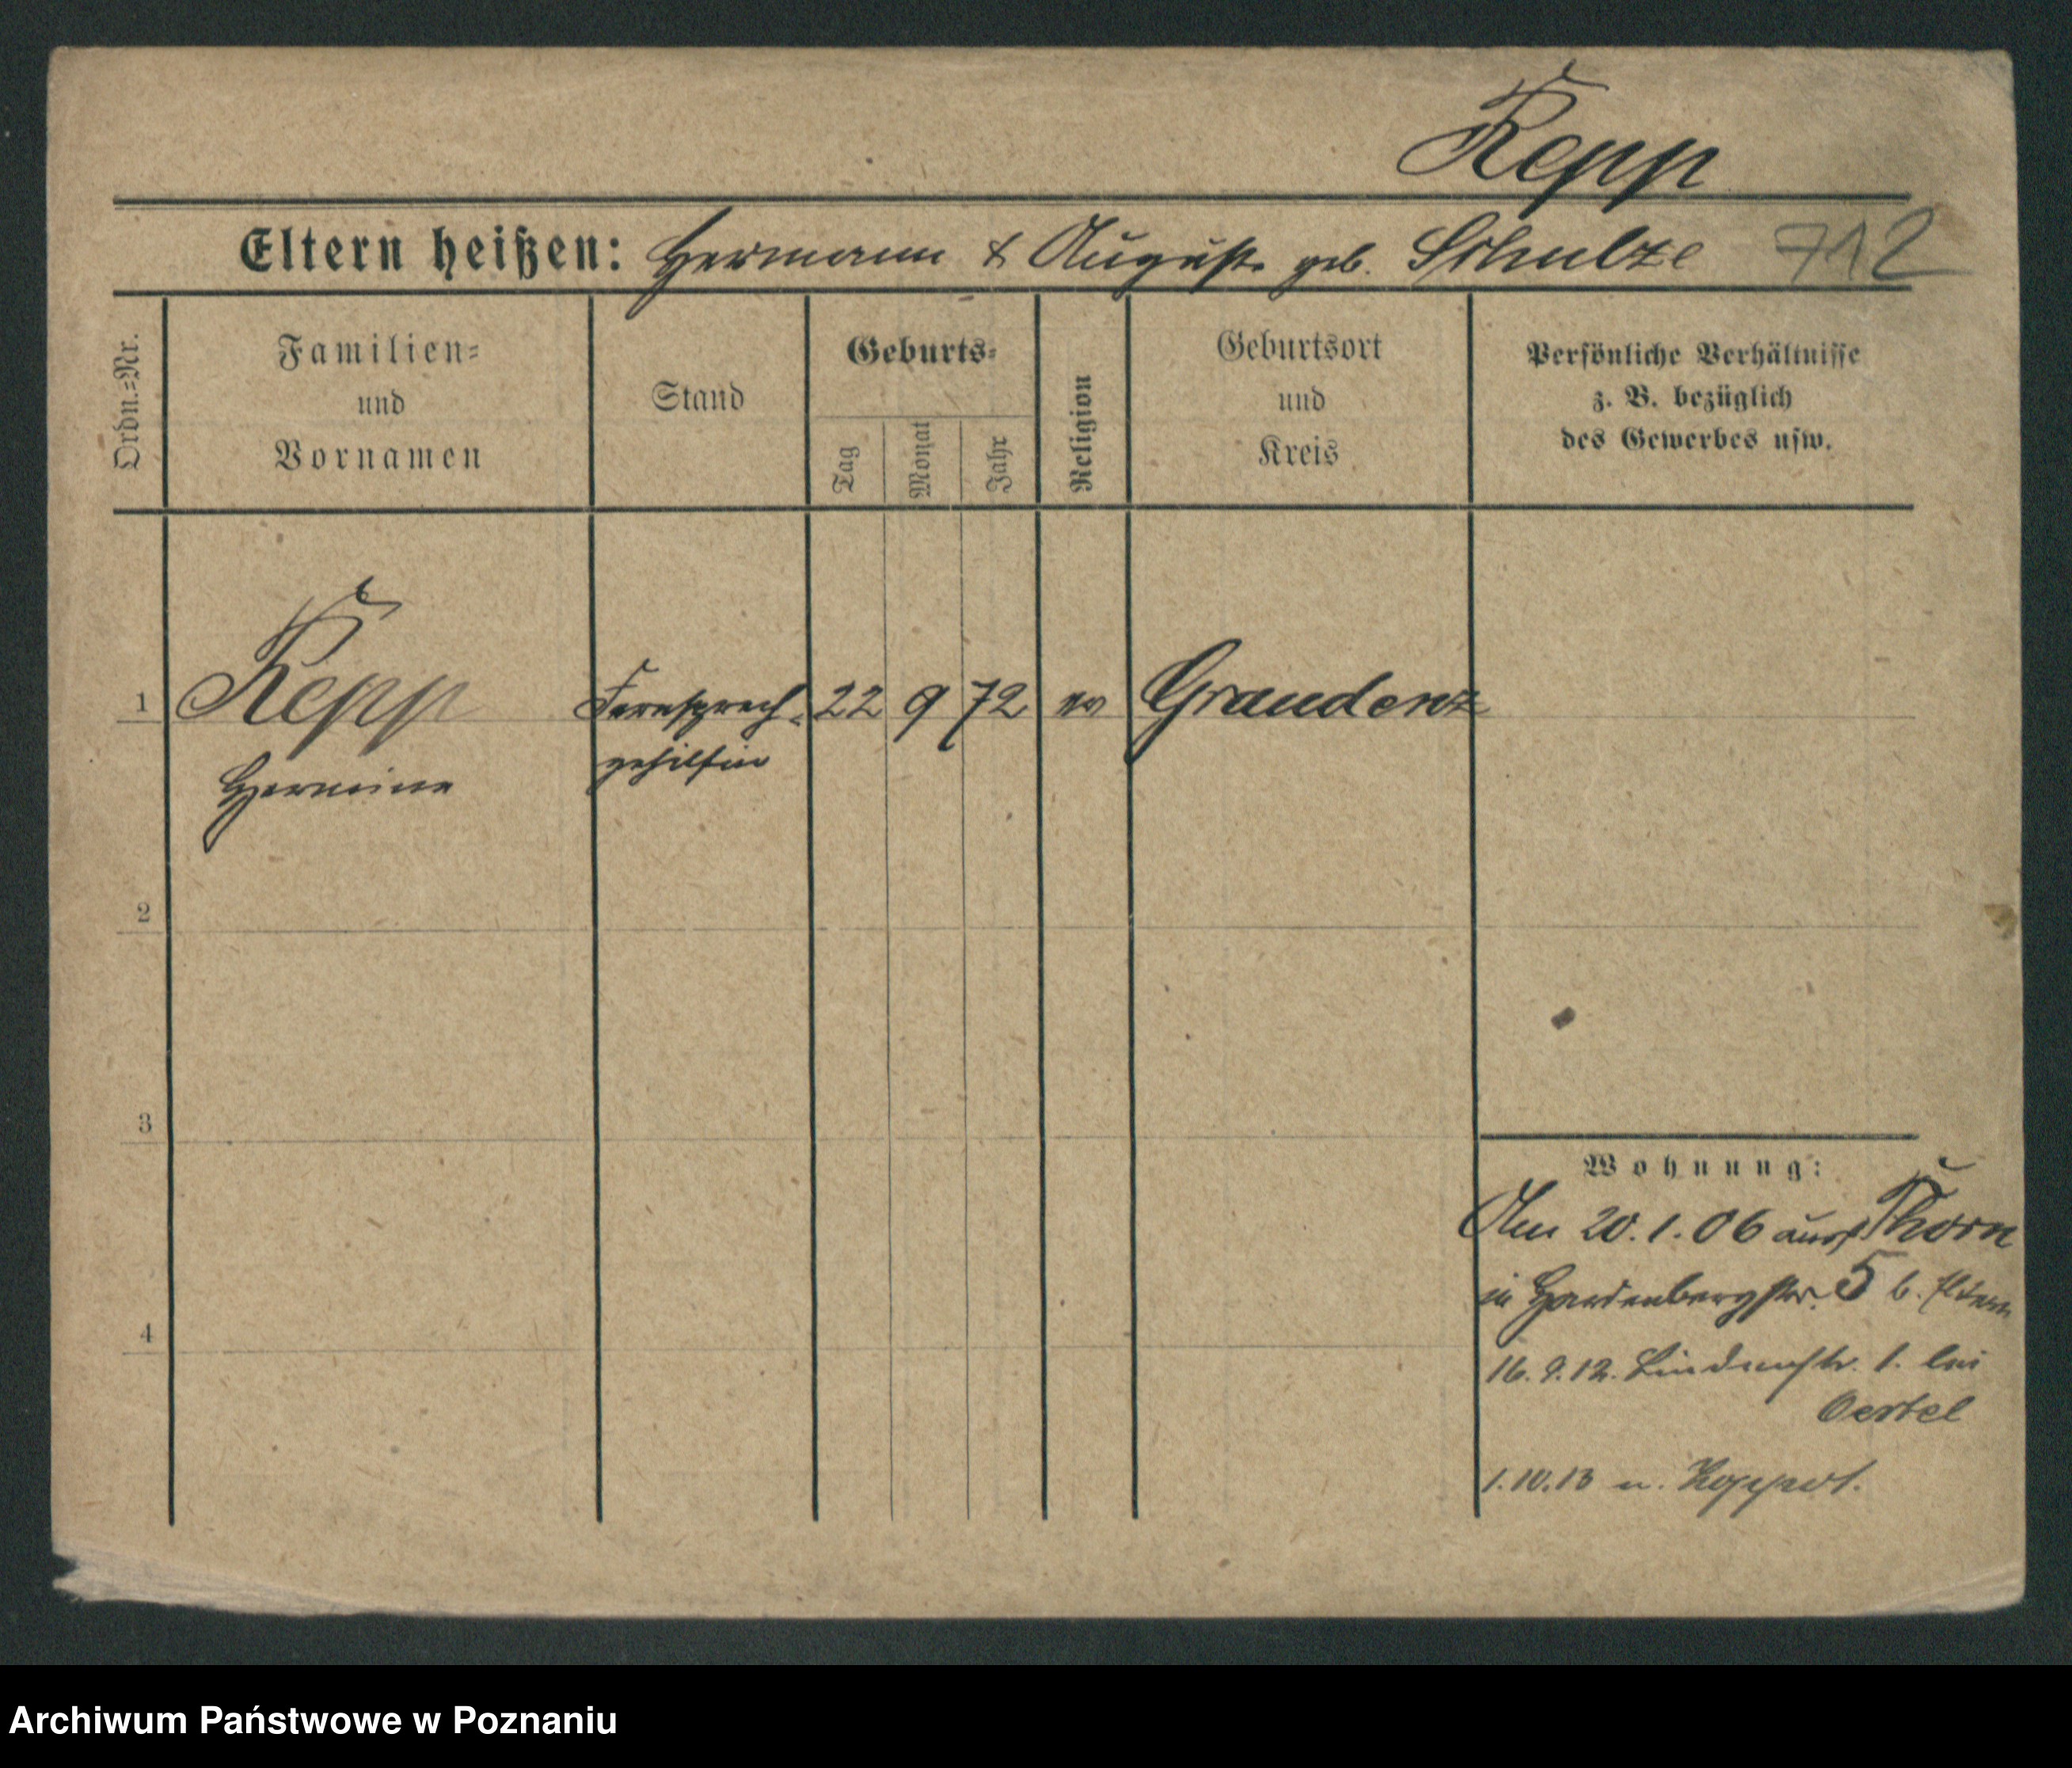 Kepp
Eltern heißen: Hermann & Auguste geb. Schulze 712
Ordn.=Nr.
Familien=
und
Vornamen
Stand
Geburts=
Tag
Monat
Jahr
Religion
Geburtsort
und
Kreis
Persönliche Verhältnisse
z. B. bezüglich
des Gewerbes usw.
1 Kepp Fernsprech= 22 9 72 ev Graudenz
Hermine gehilfin
2
3
4
Wohnung:
Am 20.1.06 aus Thorn
in Hardenbergstr. 5 b. Eltern
16.9.12. Lindenstr. 1. bei
Oertel
1.10.13 n. Zoppot.
Archiwum Państwowe w Poznaniu